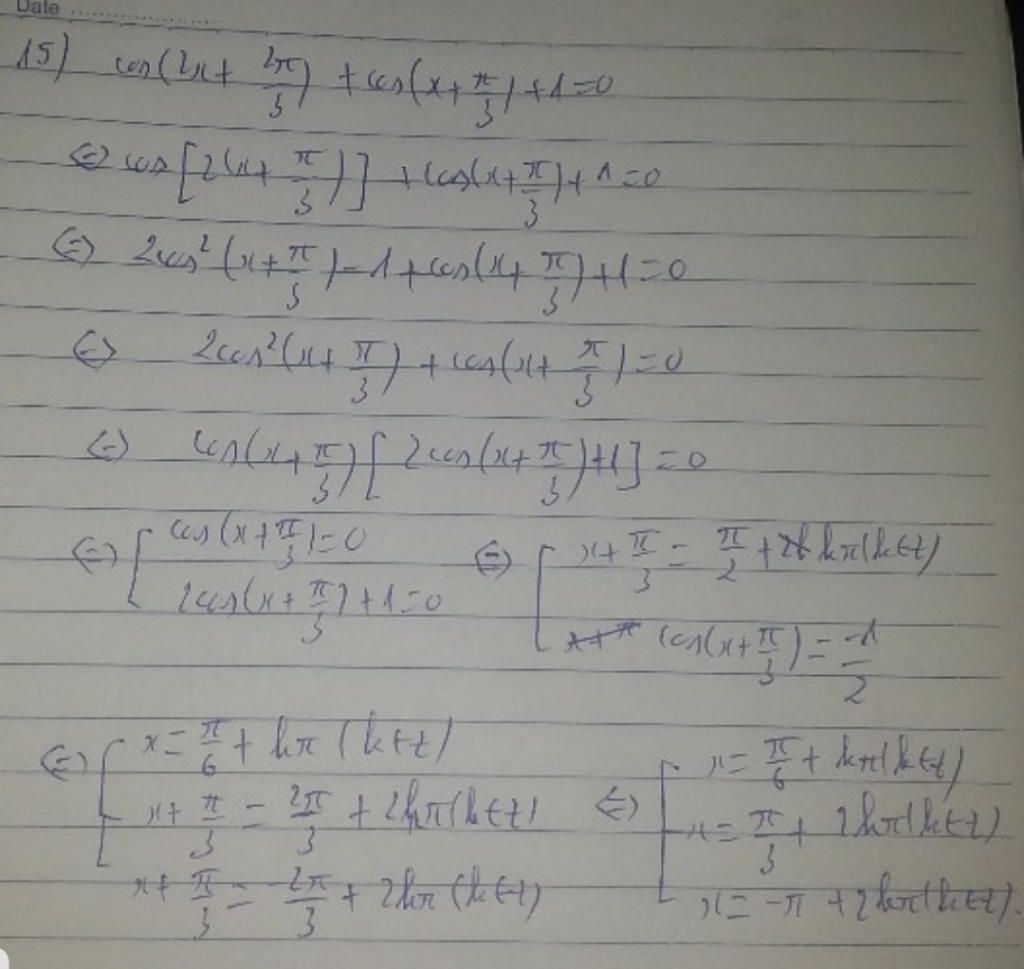 Date ........................
15) cos(2x + 2π/3) + cos(x + π/3) + 1 = 0
⇔ cos[2(x + π/3)] + cos(x + π/3) + 1 = 0
⇔ 2cos²(x + π/3) - 1 + cos(x + π/3) + 1 = 0
⇔ 2cos²(x + π/3) + cos(x + π/3) = 0
⇔ cos(x + π/3)[2cos(x + π/3) + 1] = 0
⇔ [ cos(x + π/3) = 0
2cos(x + π/3) + 1 = 0
⇔ [ x + π/3 = π/2 + kπ (k∈Z)
cos(x + π/3) = -1/2
⇔ [ x = π/6 + kπ (k∈Z)
x + π/3 = 2π/3 + 2kπ (k∈Z)
x + π/3 = -2π/3 + 2kπ (k∈Z)
⇔ [ x = π/6 + kπ (k∈Z)
x = π/3 + 2kπ (k∈Z)
x = -π + 2kπ (k∈Z).